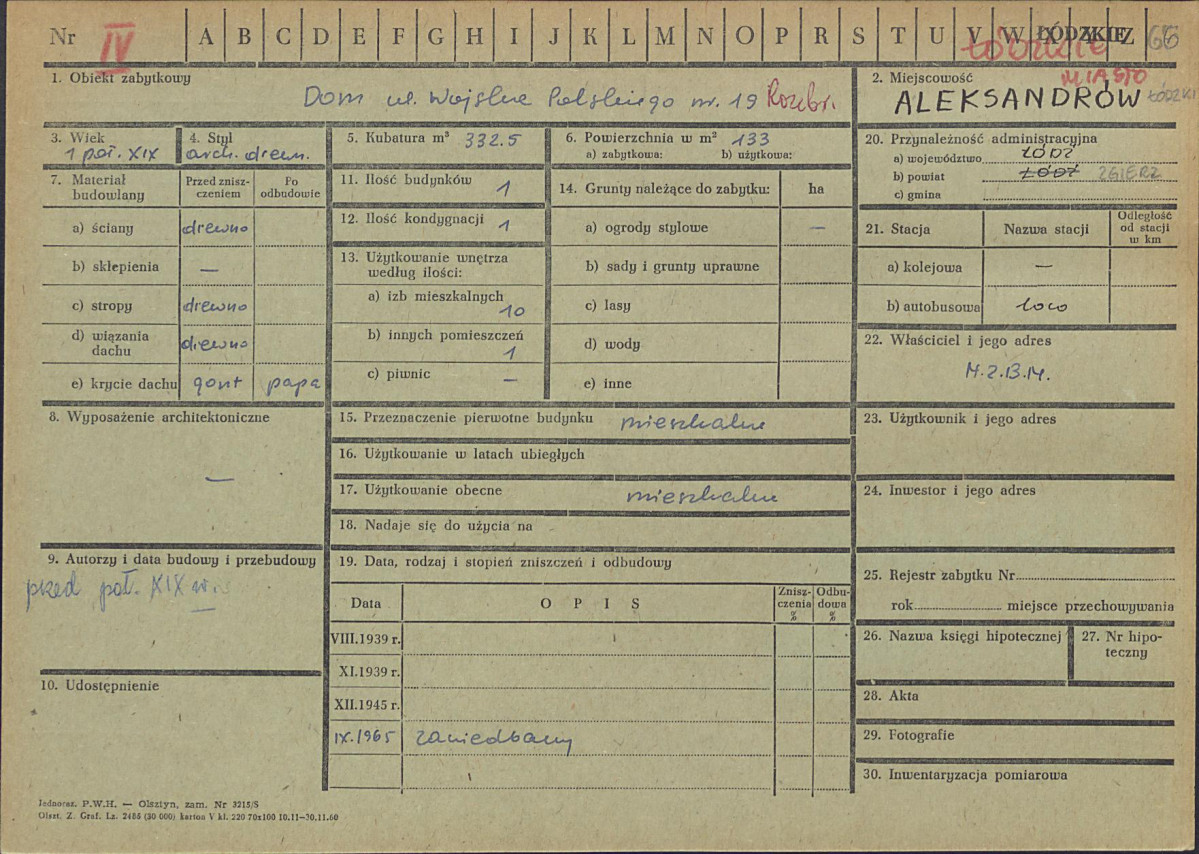 Nr IV A B C D E F G H I J K L M N O P R S T U V W X Y Z ŁÓDZKIE 66
ŁÓDZKIE
1. Obiekt zabytkowy
Dom ul. Wojska Polskiego nr. 19 Rozebr.
2. Miejscowość MIASTO
ALEKSANDRÓW ŁÓDZKI
3. Wiek
1 poł. XIX
4. Styl
arch. drewn.
5. Kubatura m³ 332.5
6. Powierzchnia w m² 133
a) zabytkowa: b) użytkowa:
20. Przynależność administracyjna
a) województwo ŁÓDŹ
b) powiat ŁÓDŹ ZGIERZ
c) gmina
7. Materiał budowlany
Przed znisz-
czeniem
Po
odbudowie
a) ściany drewno
b) sklepienia —
c) stropy drewno
d) wiązania dachu drewno
e) krycie dachu gont papa
11. Ilość budynków 1
12. Ilość kondygnacji 1
13. Użytkowanie wnętrza
według ilości:
a) izb mieszkalnych
10
b) innych pomieszczeń
1
c) piwnic —
14. Grunty należące do zabytku: ha
a) ogrody stylowe —
b) sady i grunty uprawne
c) lasy
d) wody
e) inne
21. Stacja Nazwa stacji
Odległość
od stacji
w km
a) kolejowa —
b) autobusowa loco
22. Właściciel i jego adres
M.Z.B.M.
8. Wyposażenie architektoniczne
—
15. Przeznaczenie pierwotne budynku mieszkalne
16. Użytkowanie w latach ubiegłych
17. Użytkowanie obecne mieszkalne
18. Nadaje się do użycia na
23. Użytkownik i jego adres
24. Inwestor i jego adres
9. Autorzy i data budowy i przebudowy
przed poł. XIX w.
10. Udostępnienie
19. Data, rodzaj i stopień zniszczeń i odbudowy
Data OPIS
Znisz-
czenia
%
Odbu-
dowa
%
VIII.1939 r.
XI.1939 r.
XII.1945 r.
IX.1965 zaniedbany
25. Rejestr zabytku Nr
rok miejsce przechowywania
26. Nazwa księgi hipotecznej
27. Nr hipo-
teczny
28. Akta
29. Fotografie
30. Inwentaryzacja pomiarowa
Jednoraz. P.W.H. — Olsztyn, zam. Nr 3215/S
Olszt. Z. Graf. Lz. 2486 (30 000) karton V kl. 220 70x100 10.11—30.11.60